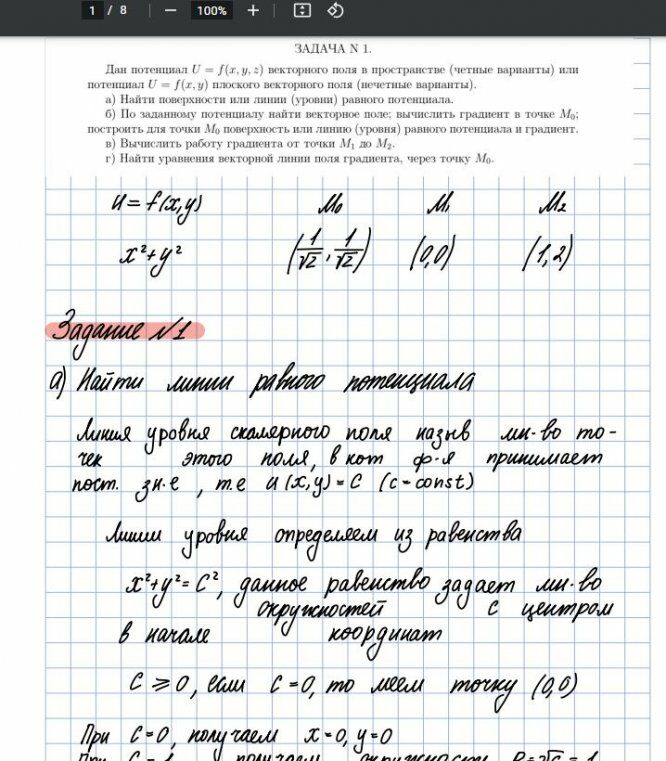 1 / 8 — 100% +
ЗАДАЧА N 1.
Дан потенциал U = f(x, y, z) векторного поля в пространстве (четные варианты) или
потенциал U = f(x, y) плоского векторного поля (нечетные варианты).
а) Найти поверхности или линии (уровни) равного потенциала.
б) По заданному потенциалу найти векторное поле; вычислить градиент в точке M₀;
построить для точки M₀ поверхность или линию (уровня) равного потенциала и градиент.
в) Вычислить работу градиента от точки M₁ до M₂.
г) Найти уравнения векторной линии поля градиента, через точку M₀.
U = f(x,y) M₀ M₁ M₂
x²+y² (1/√2, 1/√2) (0,0) (1,2)
Задание №1
а) Найти линии равного потенциала
Линия уровня скалярного поля назыв мн-во то-
чек этого поля, в кот ф-я принимает
пост. зн-е, т.е u(x,y)=C (c-const)
Линии уровня определяем из равенства
x²+y²=C², данное равенство задает мн-во
окружностей с центром
в начале координат
C ⩾ 0, если C=0, то меем точку (0,0)
При C=0, получаем x=0, y=0
При C=1 получаем окружность R=√c=1